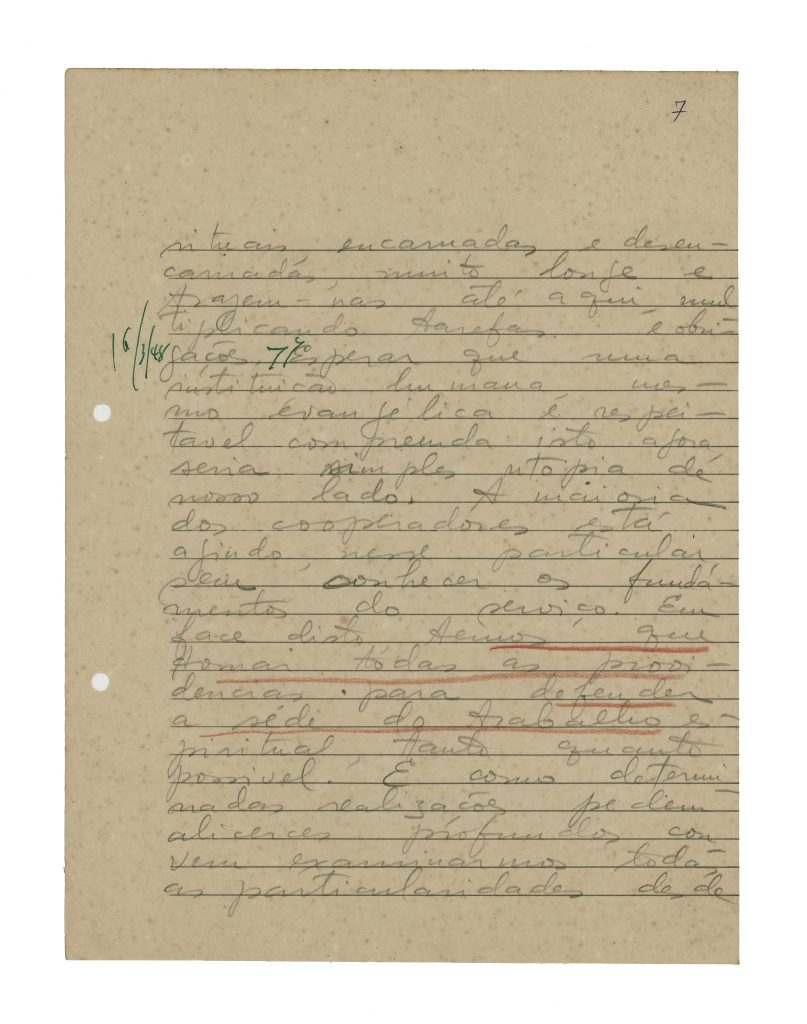 7
rituais, encarnadas e desen-
carnadas, muito longe e
trazem-nas até aqui, mul
tiplicando tarefas e obri-
16/3/48
gações. Esperar que uma
instituição humana, mes-
mo evangélica e respei-
tavel comprenda isto agora
seria simples utopia de
nosso lado. A maioria
dos cooperadores está
agindo, nesse particular
sem conhecer os funda-
mentos do serviço. Em
face disto temos que
tomar tôdas as provi-
dencias para defender
a séde do trabalho es-
piritual tanto quanto
possivel. E como determi
nadas realizações pedem
alicerces profundos con
vem examinarmos todas
as particularidades desde